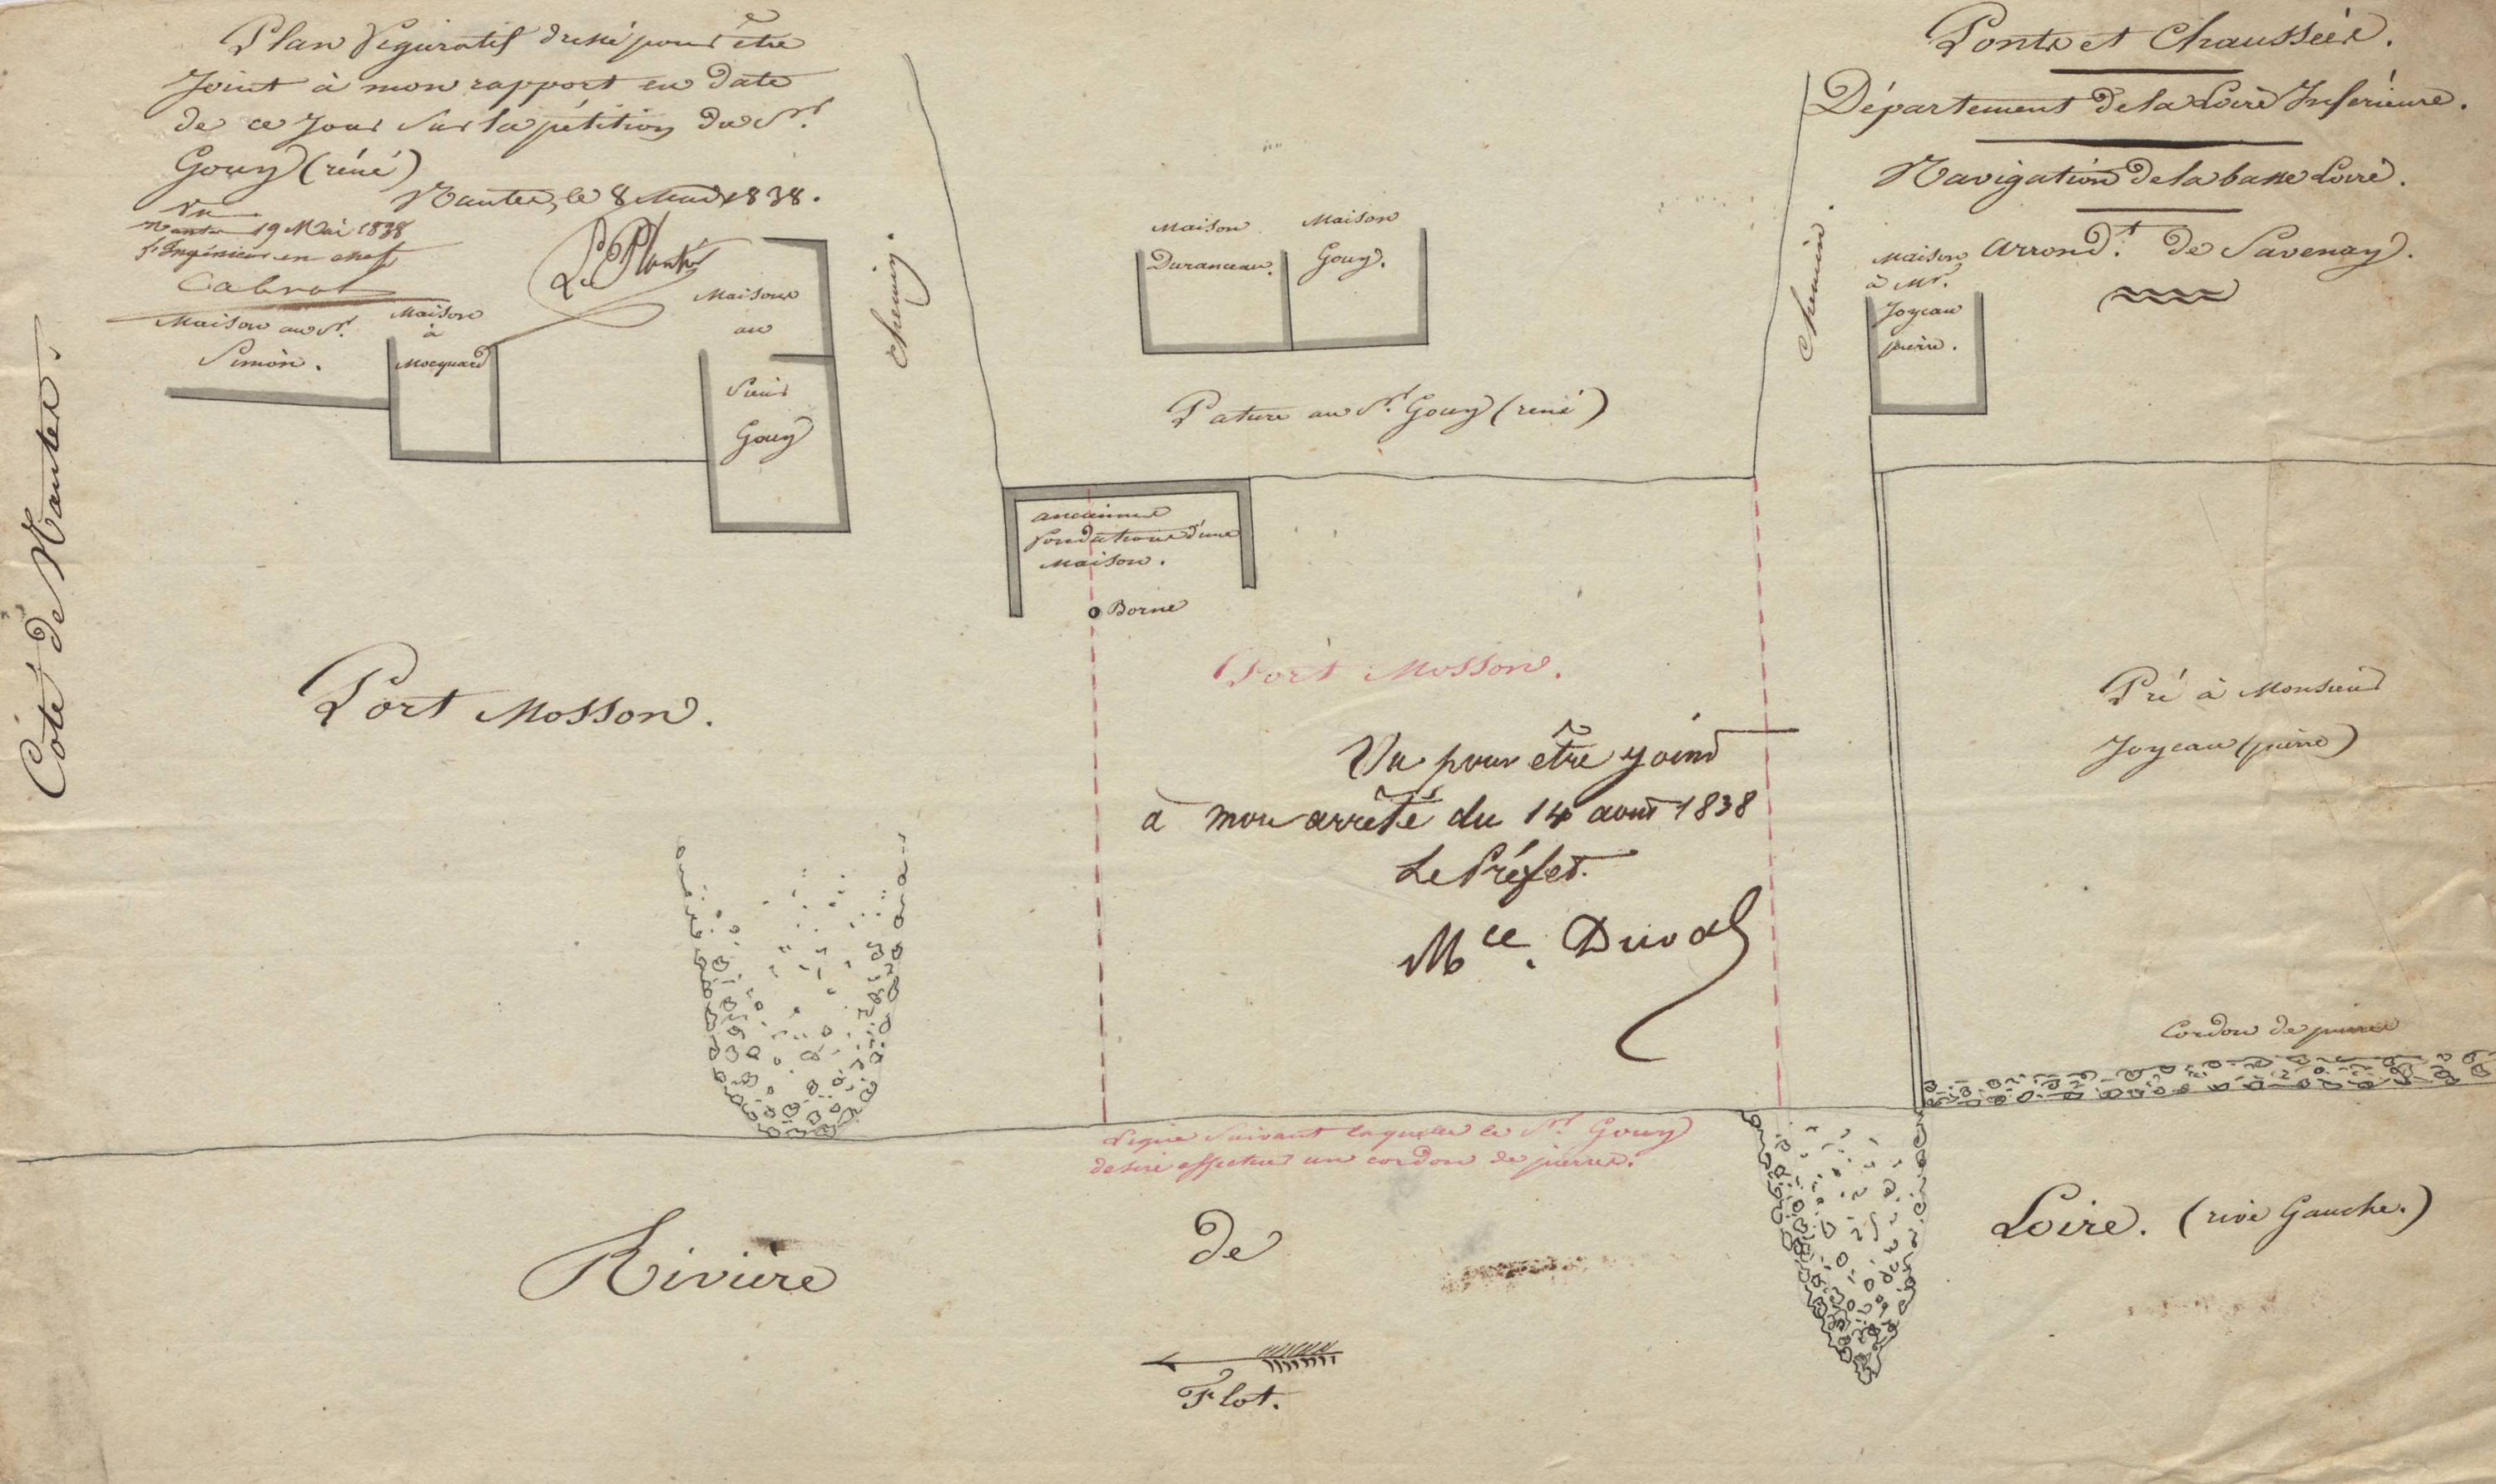 Plan figuratif dressé pour être
Joint à mon rapport en date
de ce jour sur la pétition du Sr.
Gouy (réné)
Nantes, le 8 Mai 1838.
Vu
Nantes 19 Mai 1838
l'Ingénieur en chef
Cabrol
Ponts et Chaussées.
Département de la Loire Inférieure.
Navigation de la basse Loire.
Arrond.t de Savenay.
Côté de Nantes.
Maison au Sr.
Simon.
Maison
à
Mocquard
Maison
au
Sieur
Gouy
Chemin.
Maison
Duranceau.
Maison
Gouy.
Pature au Sr. Gouy (rené)
Chemin.
Maison
à Mr.
Joyeau
pierre.
anciennes
fondations d'une
Maison.
Borne
Port Mosson.
Port Mosson.
Vu pour être joint
à mon arrêté du 14 août 1838
Le Préfet.
Mce. Duval
Pré à Monsieur
Joyeau (pierre)
Cordon de pierres
Ligne suivant laquelle le Sr. Gouy
desire effectuer un cordon de pierres.
Rivière de Loire. (rive Gauche.)
Flot.